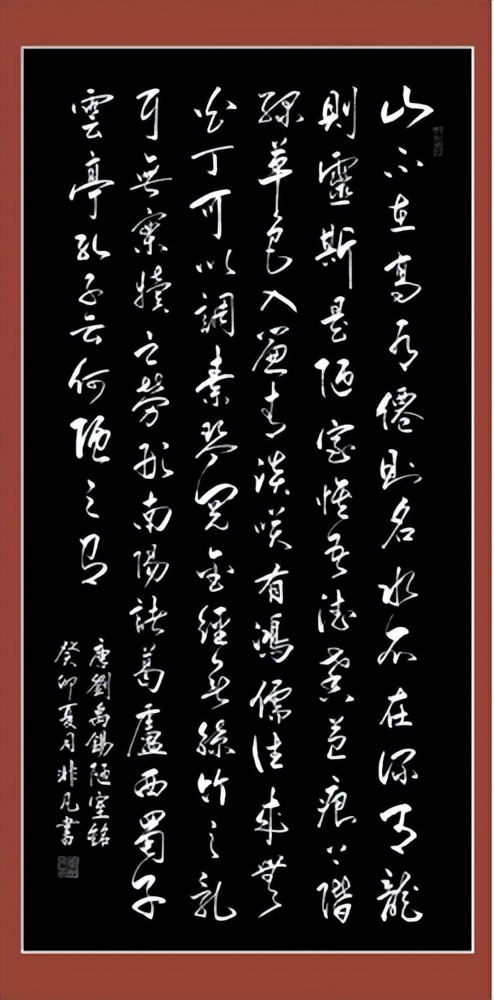 山不在高有僊則名水不在深有龍
則靈斯是陋室惟吾德馨苔痕上階
綠草色入簾青談笑有鴻儒往來無
白丁可以調素琴閱金經無絲竹之亂
耳無案牘之勞形南陽諸葛廬西蜀子
雲亭孔子云何陋之有
唐劉禹錫陋室銘
癸卯夏月非凡書